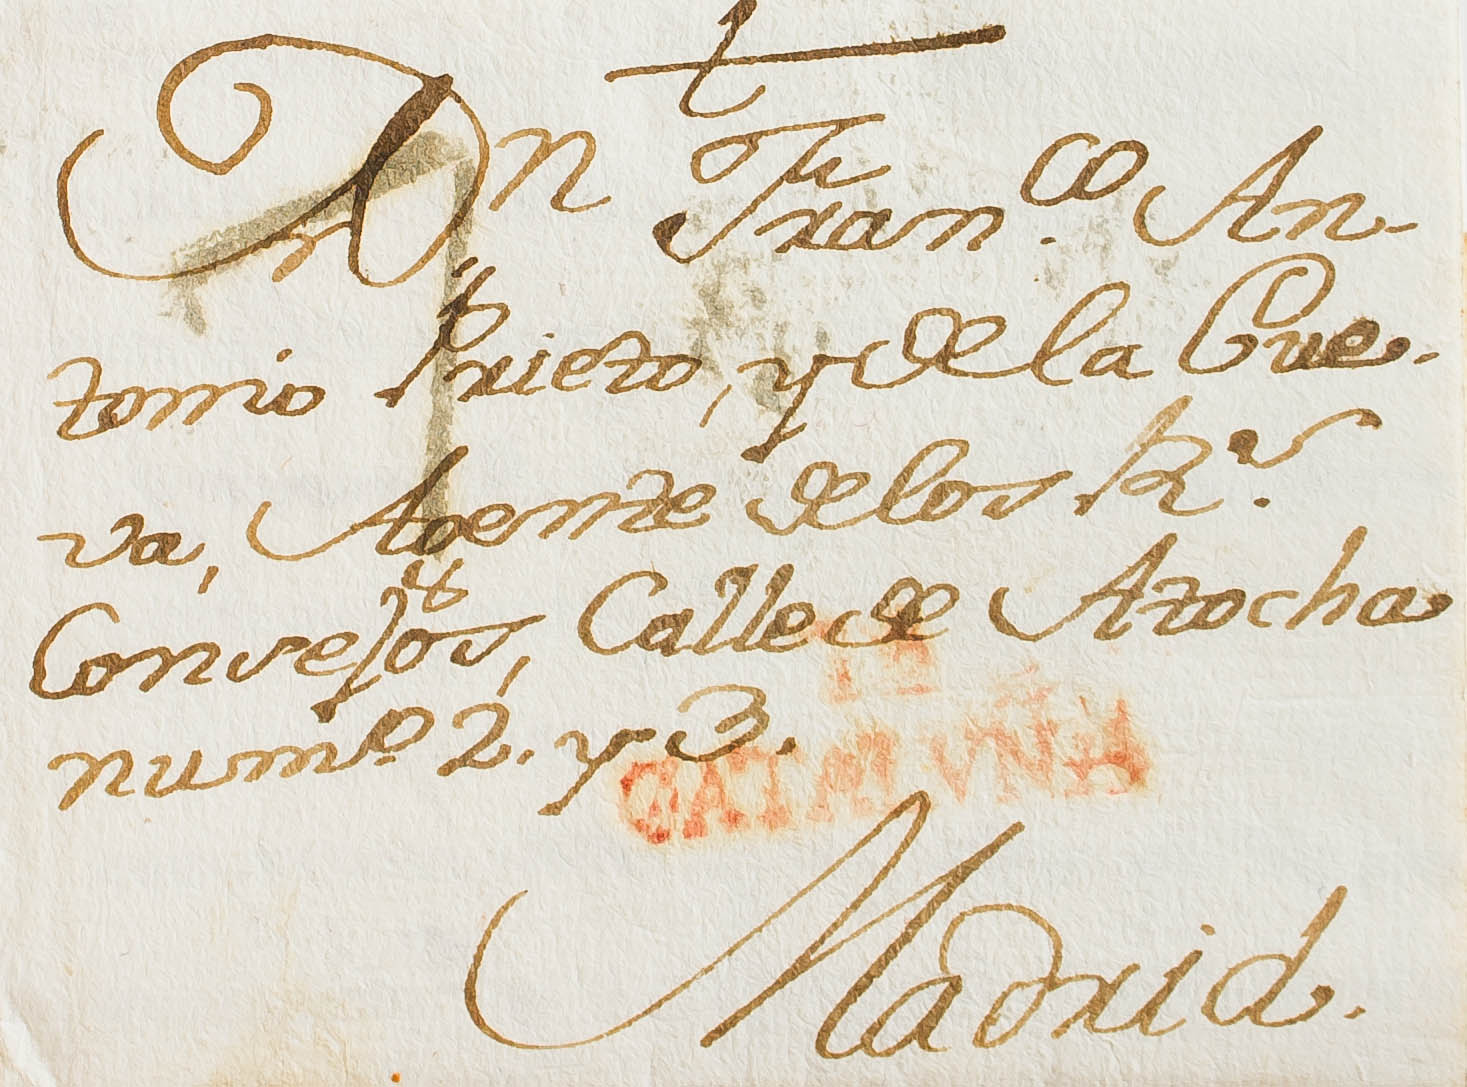 Dn Fran.co An-
tonio Prieto, y de la Cue-
va, Agente de los Rs.
Consejos, Calle de Atocha
num.o 2. y 3.
CATALUÑA
Madrid.